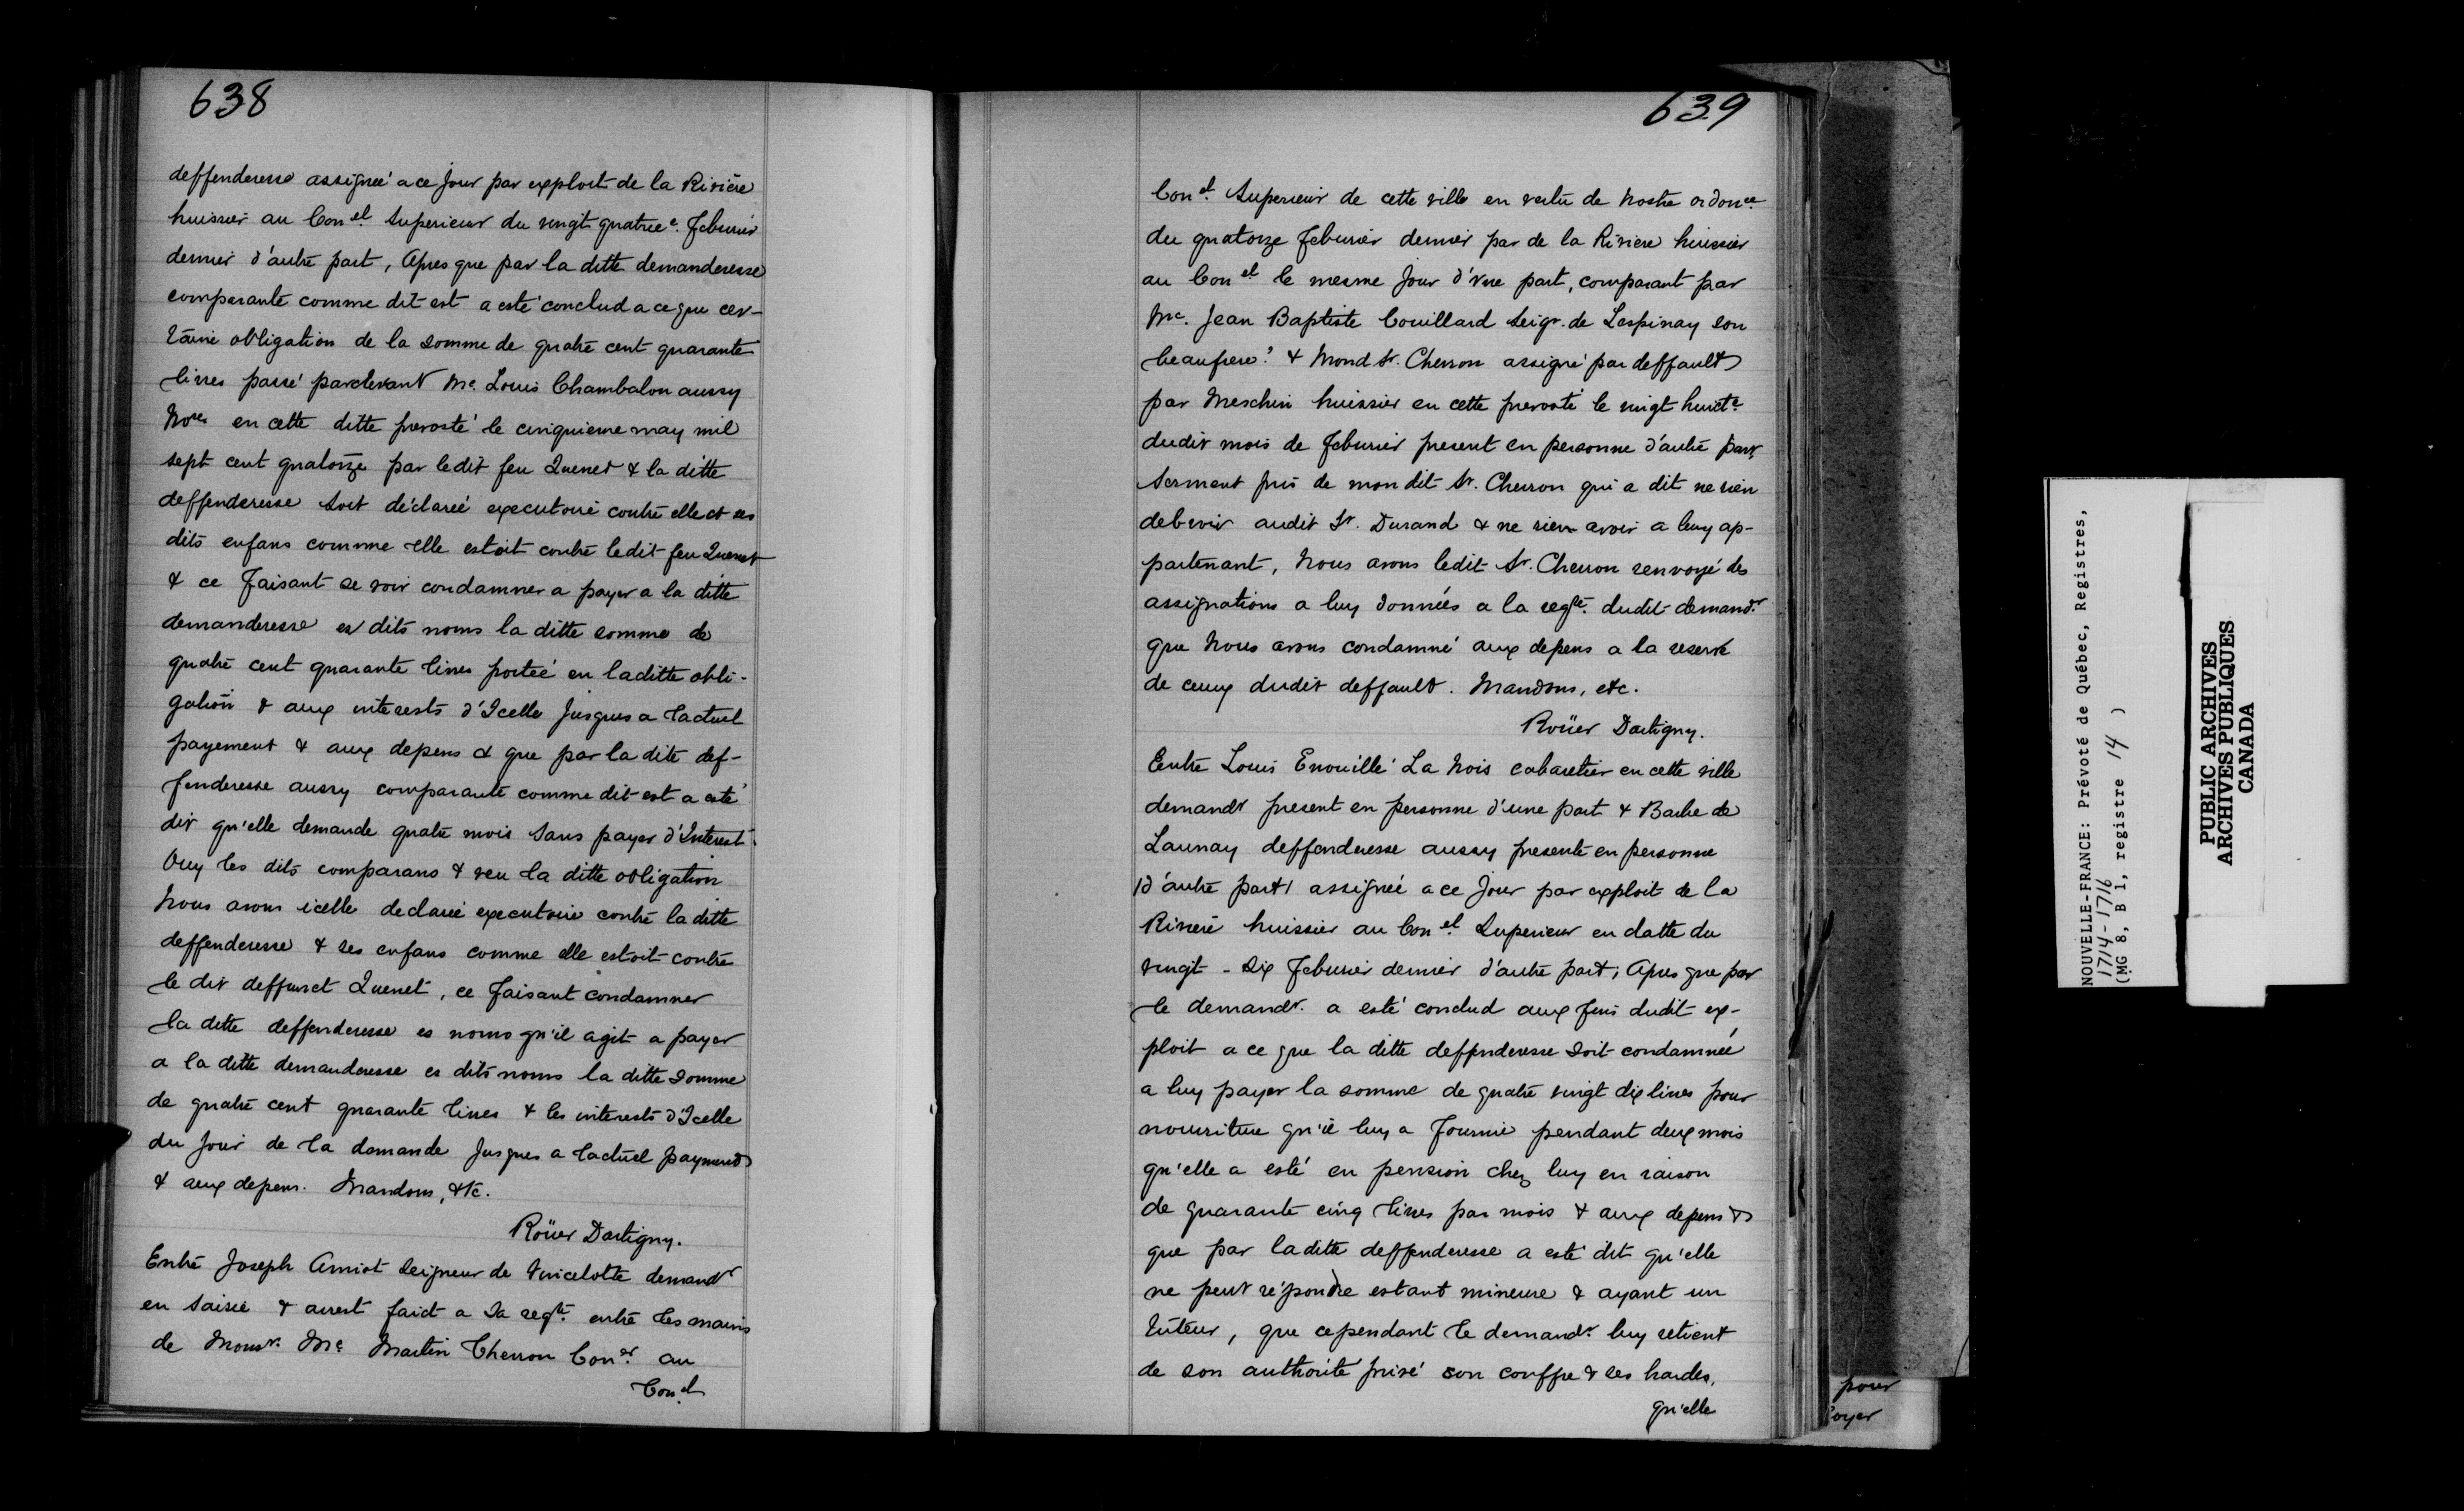 638
deffenderesse assigneé a ce Jour par exploit de la Riviére
huissier au Con.el Superieur du vingt quatree. Feburier
dernier d'autre part, Apres que par la ditte demanderesse
comparante comme dit est a esté conclud a ce que cer-
taine obligation de la somme de quatre cent quarante
livres passé pardevant Me. Louis Chambalon aussy
Nore en cette ditte prevosté le cinquieme may mil
sept cent quatorze par ledit feu Quenet & la ditte
deffenderesse soit déclareé executoire contre elle et ses
dits enfans comme elle estoit contre ledit feu Quenet
& ce Faisant se voir condamner a payer a la ditte
demanderesse es dits noms la ditte somme de
quatre cent quarante livres porteé en laditte obli-
gation & aux interests d'Icelle Jusques a lactuel
payement & aux depens & que par la dite def-
fenderesse aussy comparante comme dit est a esté
dit qu'elle demande quatre mois sans payer d'Interest.
Ouy les dits comparans & veu la ditte obligation
Nous avons icelle declareé executoire contre la ditte
deffenderesse & ses enfans comme elle estoit contre
le dit deffunct Quenet, ce faisant condamner
la ditte deffenderesse es noms qu'il agit a payer
a la ditte demanderesse es dits noms la ditte somme
de quatre cent quarante livres & les interests d'Icelle
du Jour de la demande Jusques a lactuel payment
& aux depens. Mandons, &tc.
Roüer Dartigny.
Entre Joseph Amiot Seigneur de Vincelotte demandr
en saisie & arrest faict a sa reqte. entre les mains
de Monsr. Me Martin Cherron Coner. au
Con.el
639
Con.el Superieur de cette ville en vertu de Nostre ordonce.
du quatorze Feburier dernier par de la Riviere huissier
au Con.el le mesme Jour d'vne part, comparant par
Me. Jean Baptiste Couillard Seigr. de Lespinay son
beaufrere? & Mond Sr. Cherron assigné par deffault
par Meschin huissier en cette prevosté le vingt huicte.
dudit mois de Feburier present en personne d'autre part,
Serment pris de mon dit Sr. Cherron qui a dit ne rien
debvoir audit Sr. Durand & ne rien avoir a luy ap-
partenant, Nous avons ledit Sr. Cherron renvoyé des
assignations a luy données a la reqte. dudit demandr.
que Nous avons condamné aux depens a la reserve
de ceux dudit deffault. Mandons, etc.
Roüer Dartigny.
Entre Louis Enouillé La Nois cabaretier en cette ville
demandr present en personne d'une part & Barbe de
Launay deffenderesse aussy presente en personne
(d'autre part) assigneé a ce Jour par exploit de la
Riviere huissier au Con.el Superieur en datte du
vingt-six Feburier dernier d'autre part; Apres que par
le demandr. a esté conclud aux fins dudit ex-
ploit a ce que la ditte deffenderesse soit condamneé
a luy payer la somme de quatre vingt dix livres pour
nouriture qu'il luy a Fournie pendant deux mois
qu'elle a esté en pension chez luy en raison
de quarante cinq livres par mois & aux depens &
que par laditte deffenderesse a esté dit qu'elle
ne peut répondre estant mineure & ayant un
tuteur, que cependant le demandr. luy retient
de son authorité privé son couffre & ses hardes,
qu'elle
pour
oyer
NOUVELLE-FRANCE: Prévoté de Québec, Registres,
1714-1716
(MG 8, B 1, registre 14 )
PUBLIC ARCHIVES
ARCHIVES PUBLIQUES
CANADA